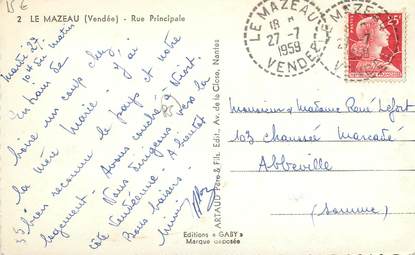 15€
2 LE MAZEAU (Vendée) - Rue Principale
Mardi 27
10h du matin
En train de
boire un coup chez
la mère Marie. J'ai
bien reconnu le pays et notre
logement. Avons couché à Niort.
Nous dirigeons vers la
côte Vendéenne. A bientôt
Bons baisers.
85
ARTAUD Père & Fils. Edit., Av. de la Close, Nantes
Editions « GABY »
Marque déposée
LE MAZEAU
18 H
27-7
1959
VENDEE
25F
Monsieur & Madame René Lefort
103 Chaussée Marcadé
Abbeville
(Somme)